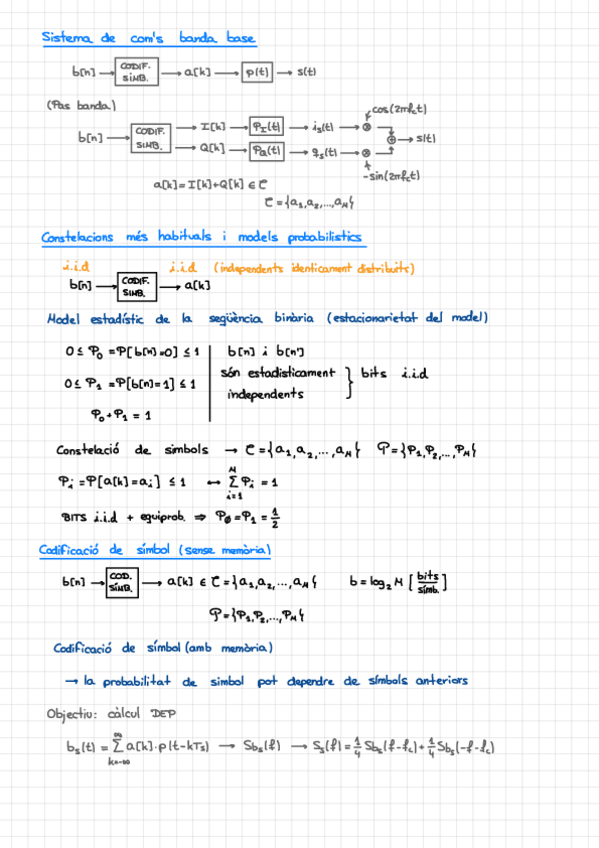 Sistema de com's banda base
b[n] → CODIF. SÍMB. → a[k] → p(t) → s(t)
(Pas banda)
b[n] → CODIF. SIMB. → I[k] → P_I(t) → i_s(t) → ⊗ cos(2πf_ct)
→ Q[k] → P_Q(t) → q_s(t) → ⊗ -sin(2πf_ct) ⊕ → s(t)
a[k]=I[k]+Q[k] ∈ C
C={a_1,a_2,...,a_M}
Constelacions més habituals i models probabilistics
i.i.d i.i.d (independents identicament distribuits)
b[n] → CODIF. SIMB. → a[k]
Model estadístic de la seqüència binària (estacionarietat del model)
0 ≤ P_0 = P[b[n]=0] ≤ 1 b[n] i b[n']
0 ≤ P_1 = P[b[n]=1] ≤ 1 són estadisticament } bits i.i.d
independents
P_0+P_1 = 1
Constelació de simbols → C={a_1,a_2,...,a_M} P={P_1,P_2,...,P_M}
P_i = P[a[k]=a_i] ≤ 1 ↔ Σ_{i=1}^{M} P_i = 1
BITS i.i.d + equiprob. ⇒ P_0=P_1=1/2
Codificació de símbol (sense memòria)
b[n] → COD. SÍMB. → a[k] ∈ C={a_1,a_2,...,a_M} b=log_2 M [bits/símb.]
P={P_1,P_2,...,P_M}
Codificació de símbol (amb memòria)
→ la probabilitat de simbol pot dependre de símbols anteriors
Objectiu: càlcul DEP
b_s(t) = Σ_{k=-∞}^{∞} a[k]·p(t-kT_s) → S_{bs}(f) → S_s(f)=1/4 S_{bs}(f-f_c)+1/4 S_{bs}(-f-f_c)